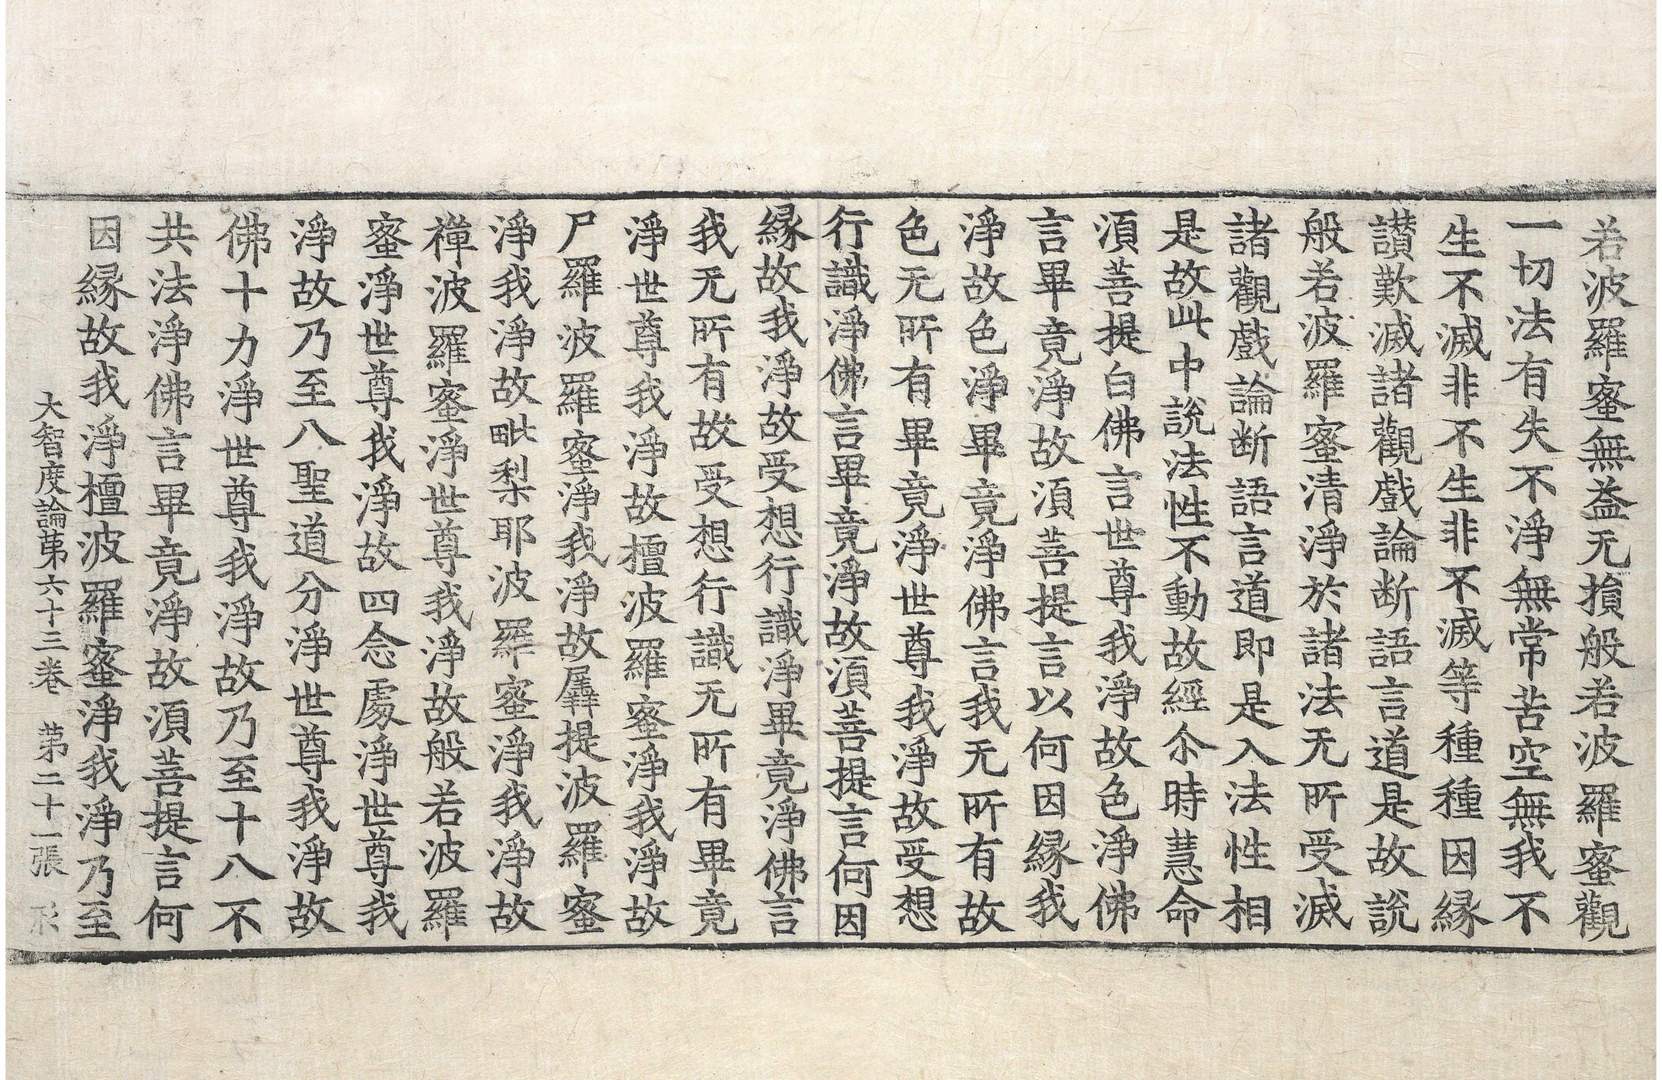 若波羅蜜無益无損般若波羅蜜觀
一切法有失不淨無常苦空無我不
生不滅非不生非不滅等種種因縁
讃歎滅諸觀戲論断語言道是故說
般若波羅蜜清淨於諸法无所受滅
諸觀戲論断語言道即是入法性相
是故此中說法性不動故經尒時慧命
須菩提白佛言世尊我淨故色淨佛
言畢竟淨故須菩提言以何因縁我
淨故色淨畢竟淨佛言我无所有故
色无所有畢竟淨世尊我淨故受想
行識淨佛言畢竟淨故須菩提言何因
縁故我淨故受想行識淨畢竟淨佛言
我无所有故受想行識无所有畢竟
淨世尊我淨故檀波羅蜜淨我淨故
尸羅波羅蜜淨我淨故羼提波羅蜜
淨我淨故毗梨耶波羅蜜淨我淨故
禪波羅蜜淨世尊我淨故般若波羅
蜜淨世尊我淨故四念處淨世尊我
淨故乃至八聖道分淨世尊我淨故
佛十力淨世尊我淨故乃至十八不
共法淨佛言畢竟淨故須菩提言何
因縁故我淨檀波羅蜜淨我淨乃至
大智度論苐六十三卷 苐二十一張